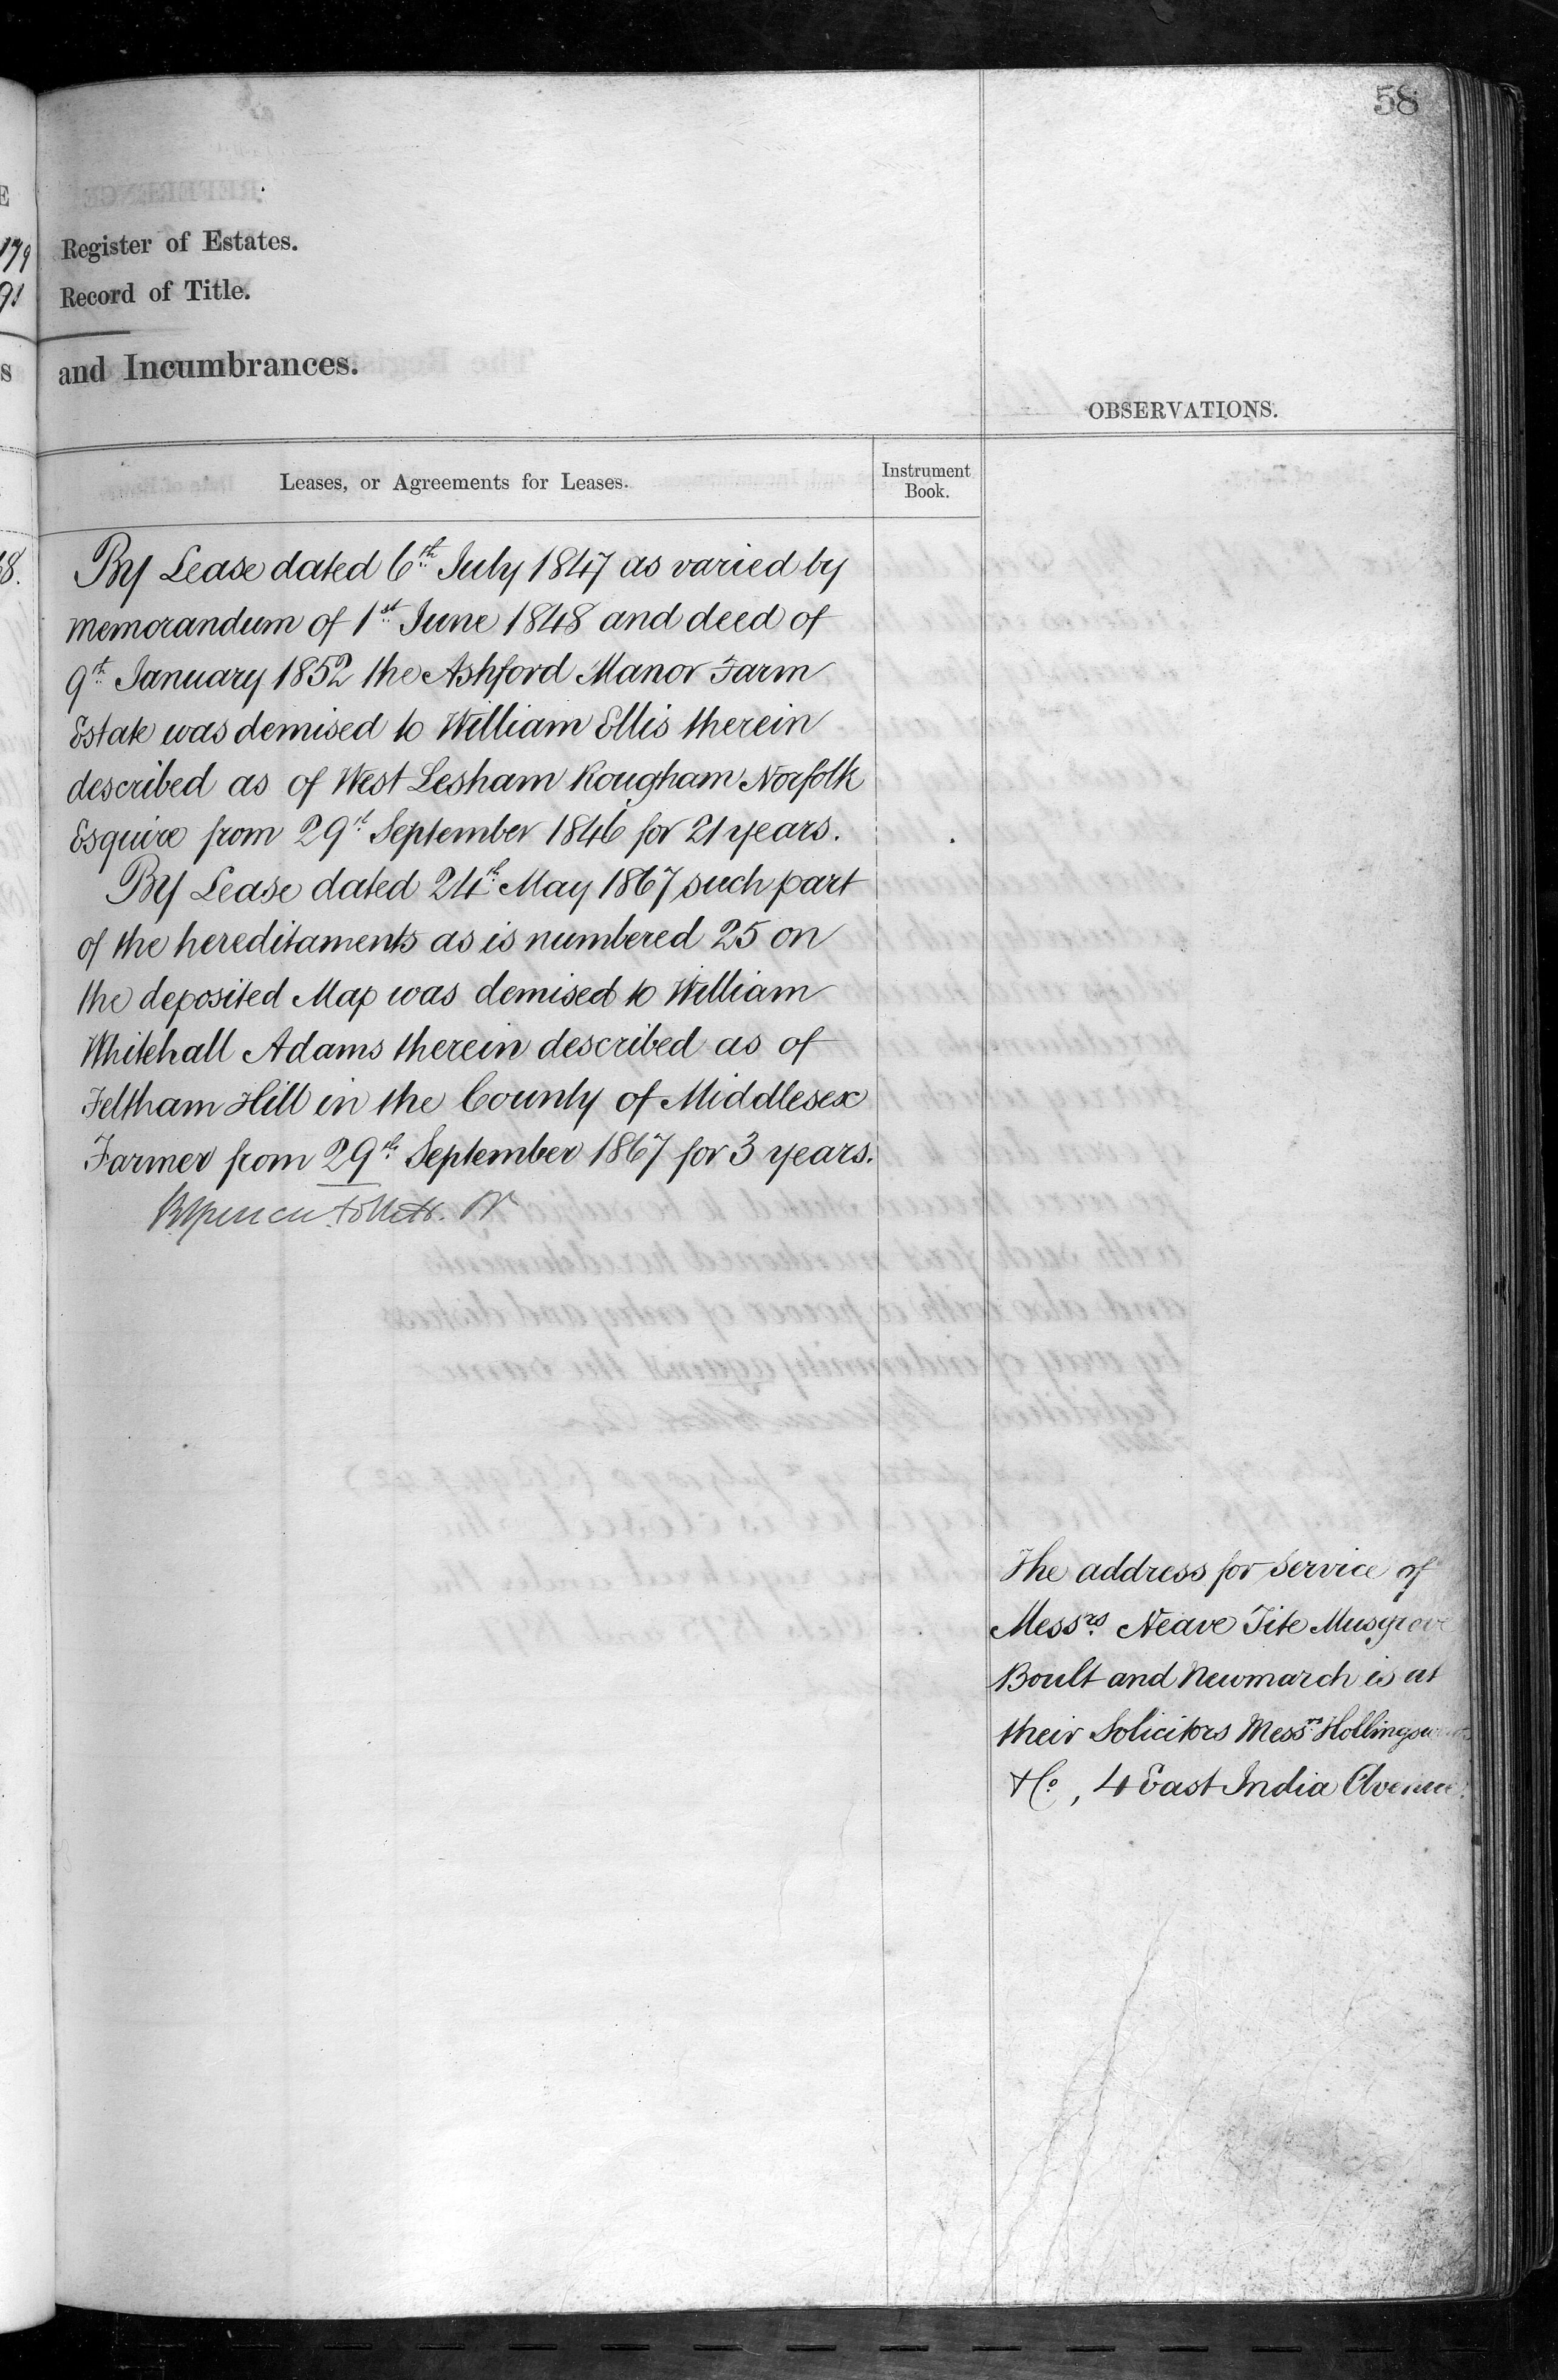 58
Register of Estates.
Record of Title.
and Incumbrances.
OBSERVATIONS.
Leases, or Agreements for Leases.
Instrument
Book.
By Lease dated 6th July 1847 as varied by
memorandum of 1st June 1848 and deed of
9th January 1852 the Ashford Manor Farm
Estate was demised to William Ellis therein
described as of West Lesham Rougham Norfolk
Esquire from 29th September 1846 for 21 years.
By Lease dated 24th May 1867 such part
of the hereditaments as is numbered 25 on
the deposited Map was demised to William
Whitehall Adams therein described as of
Feltham Hill in the County of Middlesex
Farmer from 29th September 1867 for 3 years.
The address for service of
Messrs Neave Tite Musgrove
Boult and Newmarch is at
their Solicitors Messrs
&Co, 4 East India Avenue.